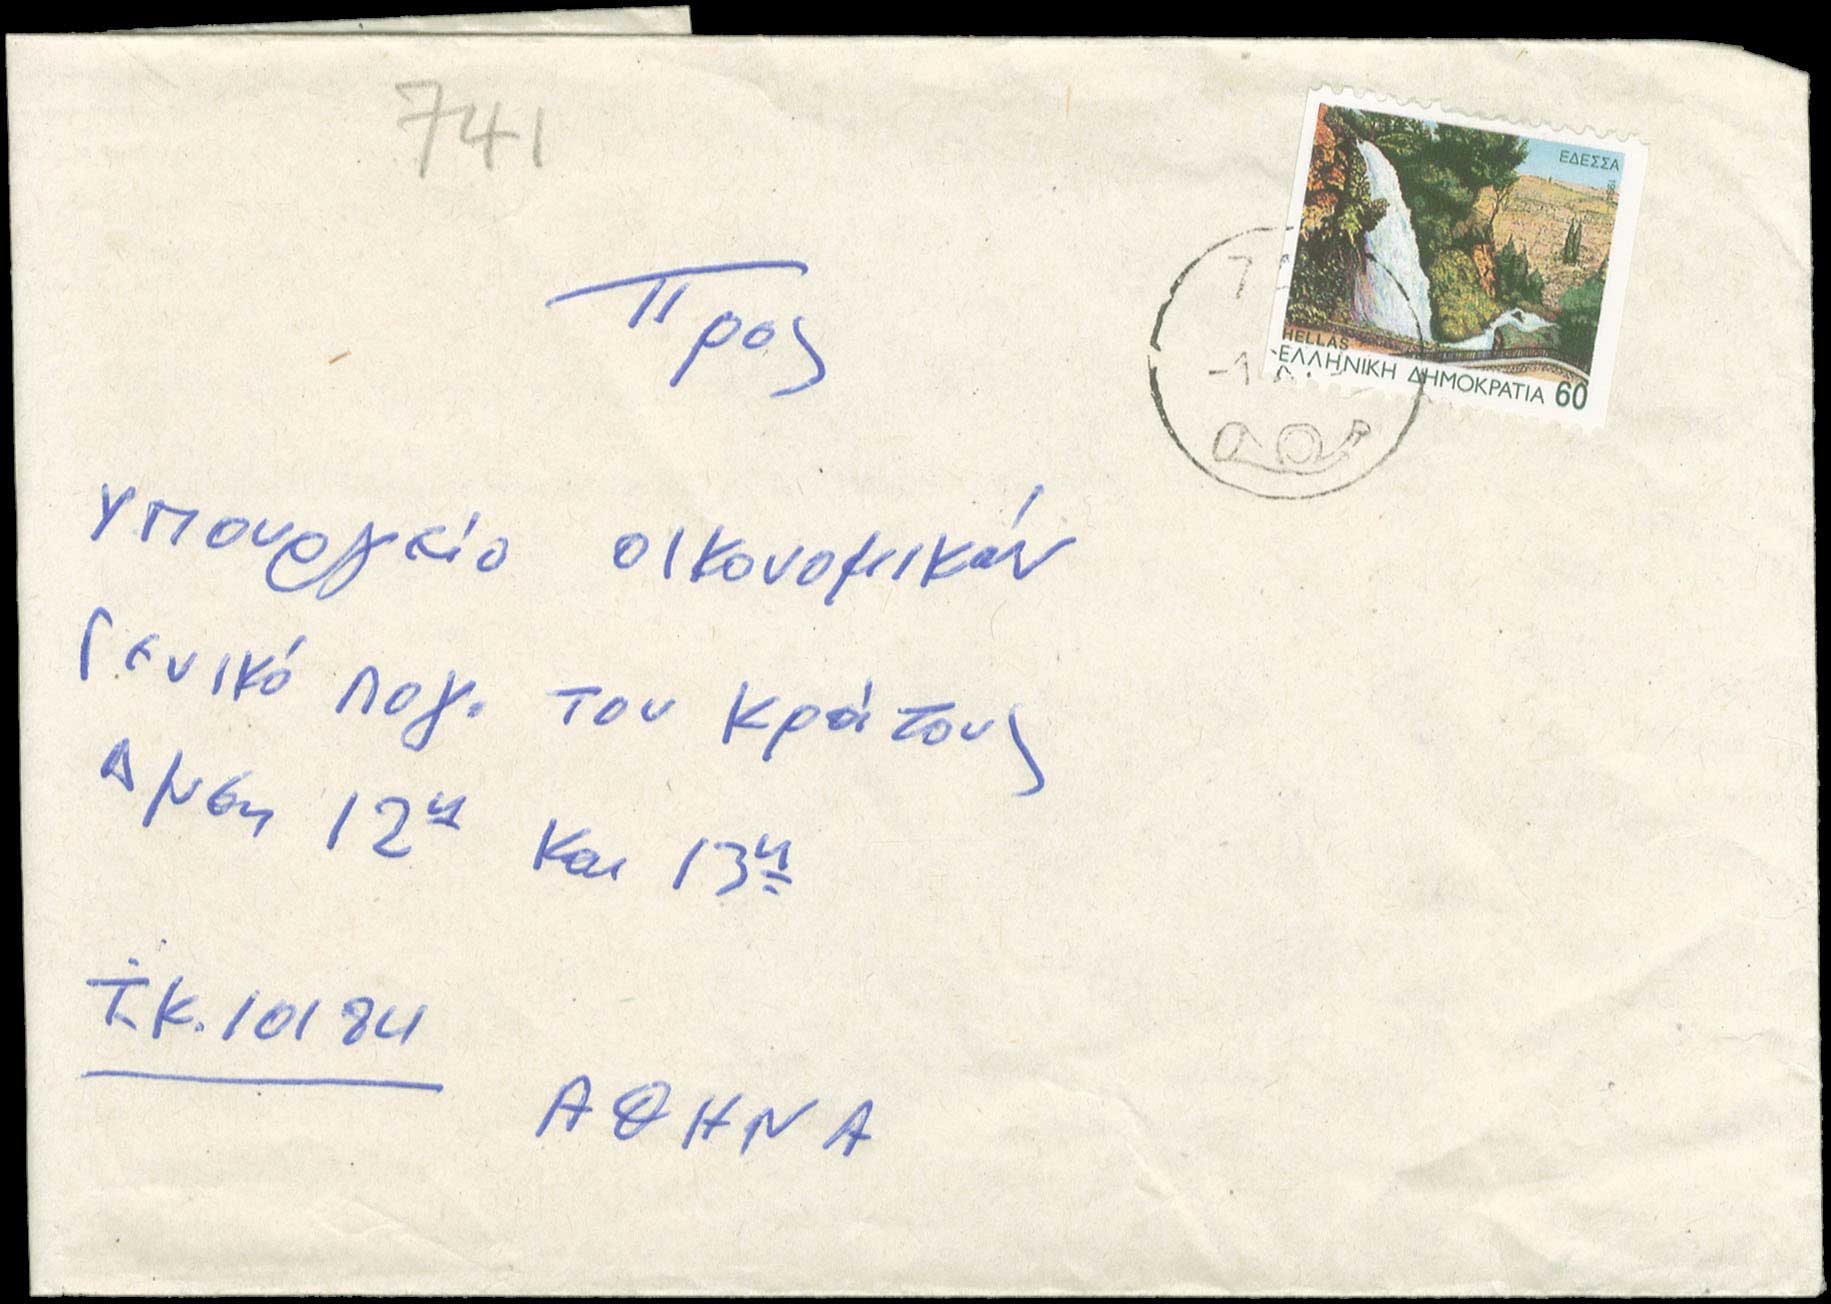 741
ΕΔΕΣΣΑ
HELLAS
ΕΛΛΗΝΙΚΗ ΔΗΜΟΚΡΑΤΙΑ 60
Προς
Υπουργείο οικονομικών
Γενικό Λογ. του κράτους
Δ/νση 12η και 13η
Τ.Κ. 10184
ΑΘΗΝΑ